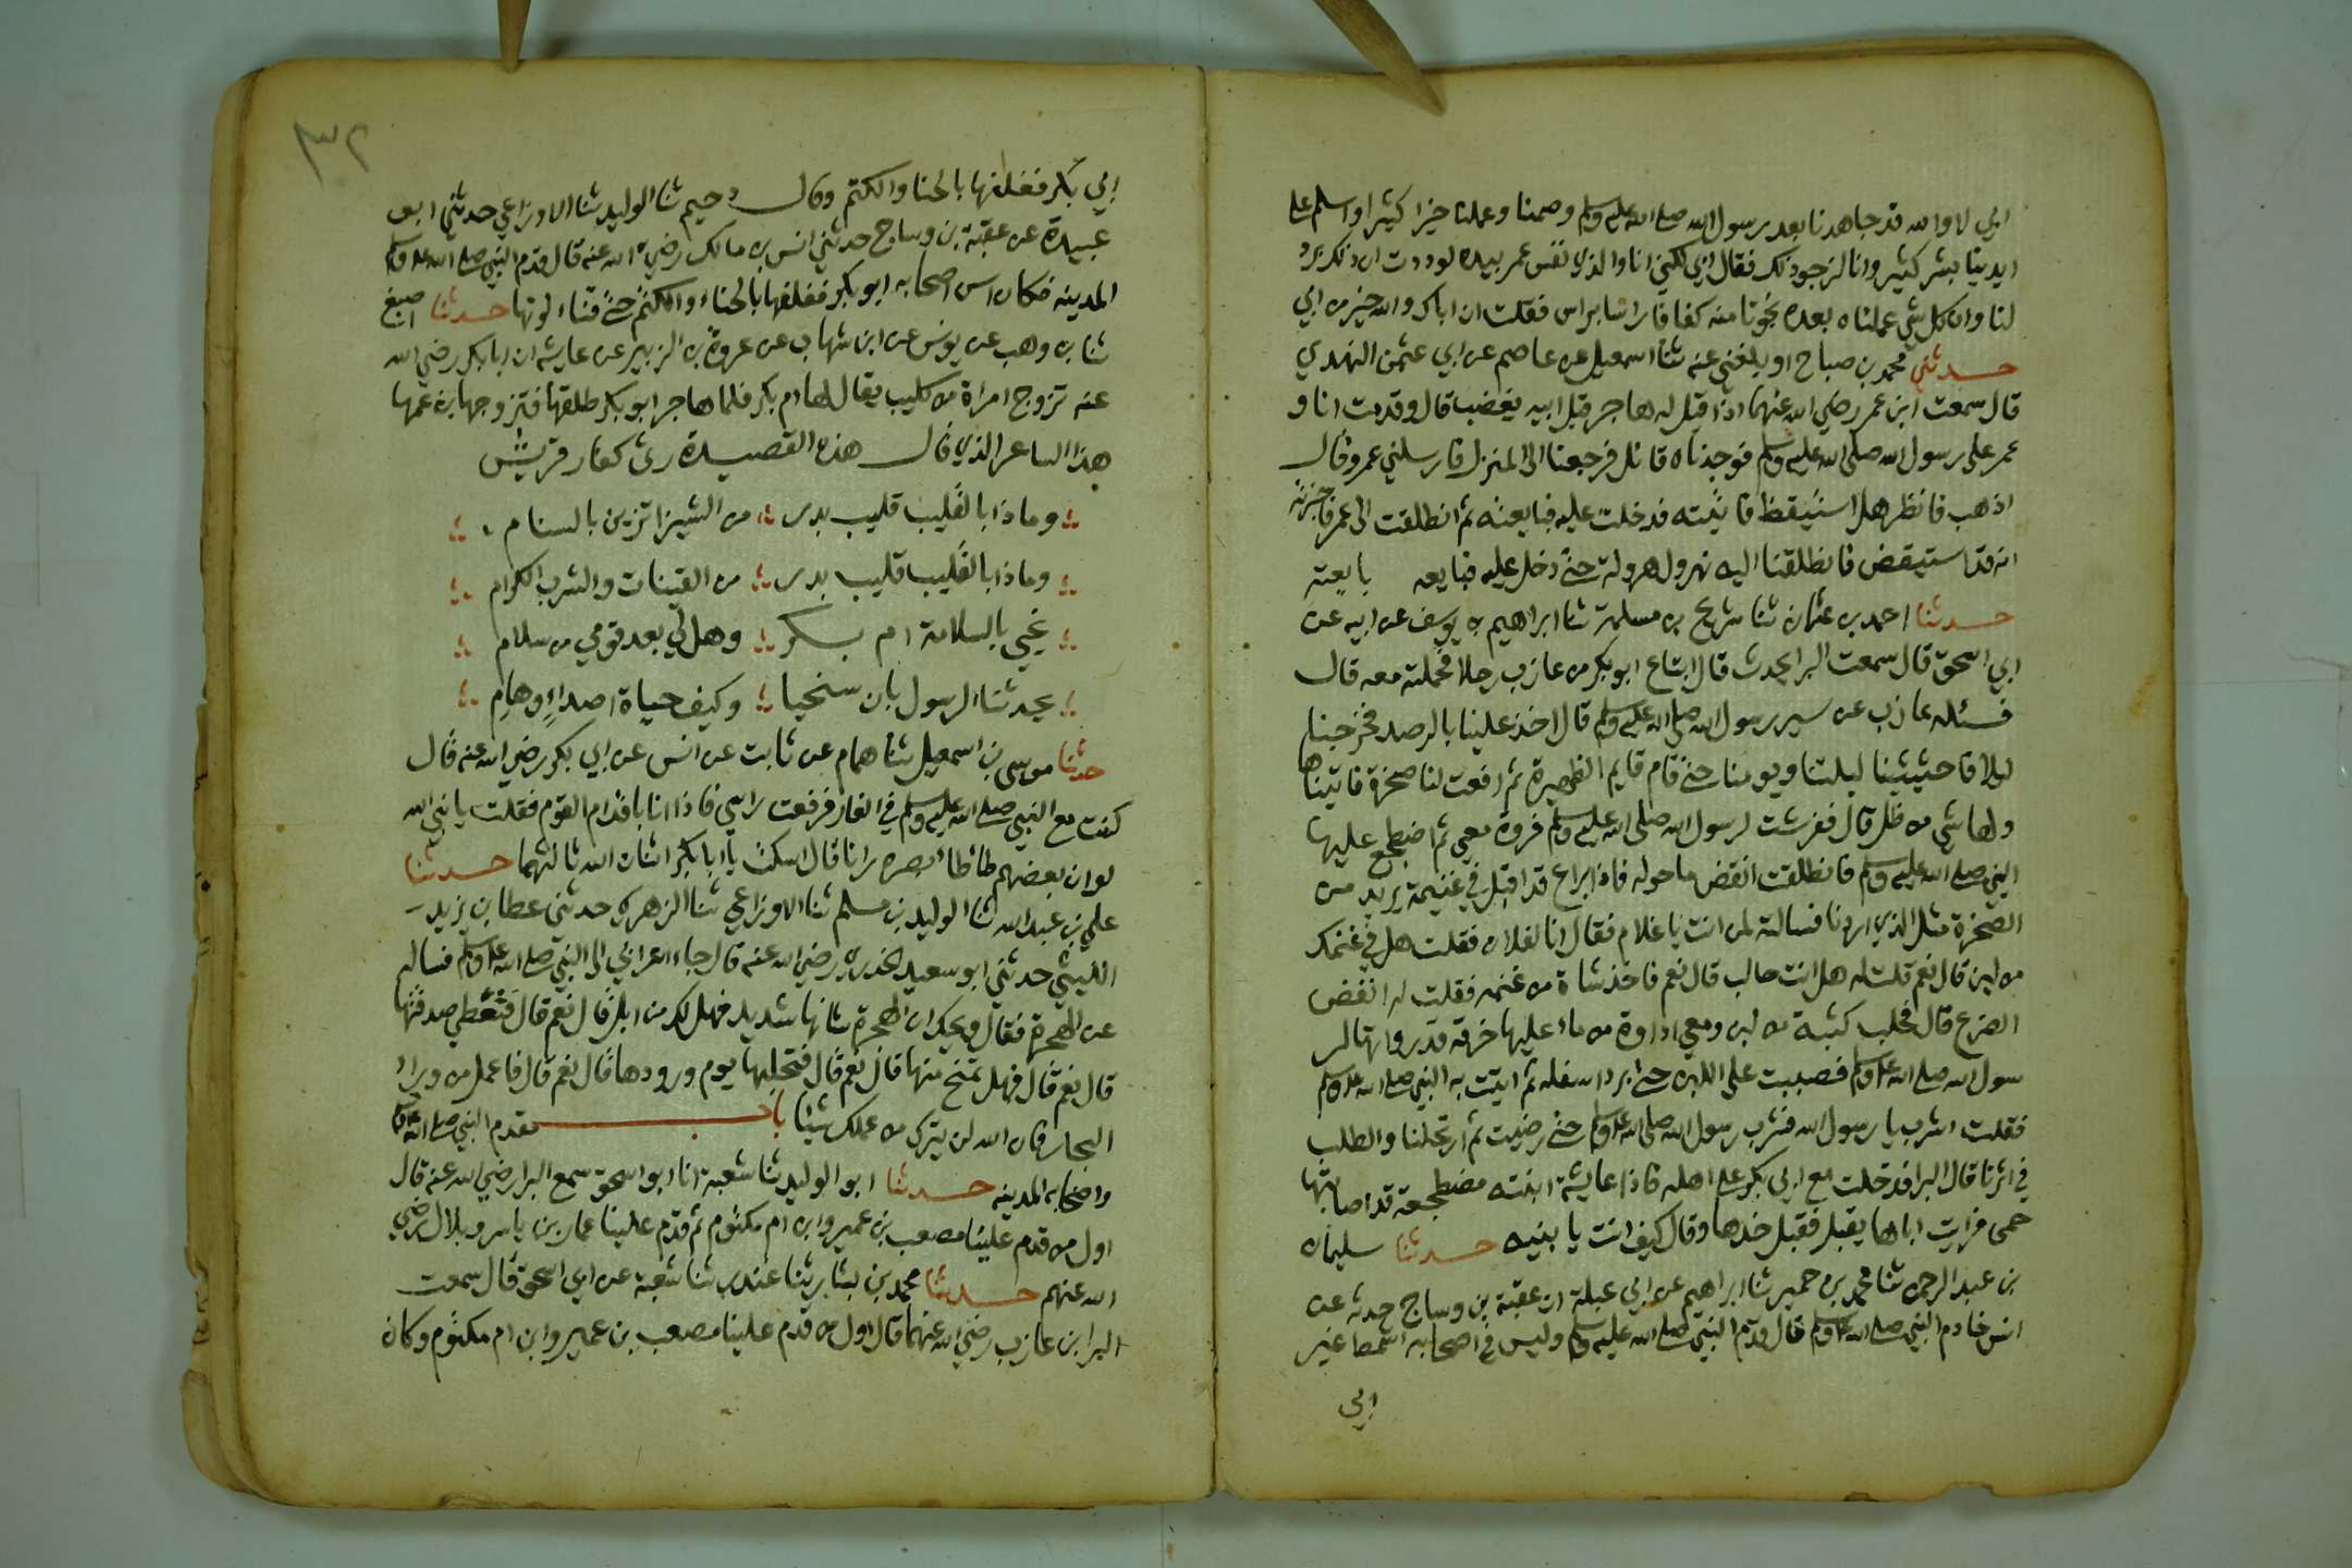 ابي لا والله قد جاهدنا بعد رسول الله صلى الله عليه وسلم وصمنا وعملنا خيرا كثيرا واسلم على
ايدينا بشر كثير وانا لنرجو ذلك فقال ابي لكني انا والذي نفس عمر بيده لوددت ان ذلك برد
لنا وان كل شي عملناه بعده نجونا منه كفافا راسا براس فقلت ان اباك والله خير من ابي
حدثني محمد بن صباح او بلغني عنه ثنا اسمعيل عن عاصم عن ابي عثمن النهدي
قال سمعت ابن عمر رضي الله عنهما اذا قيل له هاجر قبل ابيه يغضب قال وقدمت انا و
عمر على رسول الله صلى الله عليه وسلم فوجدناه قائل فرجعنا الى المنزل فارسلني عمر وقال
اذهب فانظر هل استيقظ فاتيته فدخلت عليه فبايعته ثم انطلقت الى عمر فاخبرته
انه قد استيقض فانطلقنا اليه نهرول هرولة حتى دخل عليه فبايعه بايعته
حدثنا احمد بن عثمان ثنا شريح بن مسلمة ثنا ابراهيم بن يوسف عن ابيه عن
ابي اسحق قال سمعت البرا يحدث قال ابتاع ابو بكر من عازب رحلا فحملته معه قال
فسئله عازب عن سير رسول الله صلى الله عليه وسلم قال اخذ علينا بالرصد فخرجنا
ليلا فاحثيثنا ليلتنا ويومنا حتى قام قايم الظهيرة ثم رفعت لنا صخرة فاتيناها
ولها شي من ظل قال ففرشت لرسول الله صلى الله عليه وسلم فروة معي ثم اضطجع عليها
النبي صلى الله عليه وسلم فانطلقت انفض ما حوله فاذا براع قد اقبل في غنيمة يريد من
الصخرة مثل الذي اردنا فسالته لمن انت يا غلام فقال انا لفلان فقلت هل في غنمك
من لبن قال نعم قلت له هل انت حالب قال نعم فاخذ شاة من غنمه فقلت له انفض
الضرع قال فحلب كثبة من لبن ومعي اداوة من ماء عليها خرقة قد رواتها لر
سول الله صلى الله عليه وسلم فصببت على اللبن حتى برد اسفله ثم اتيت به النبي صلى الله عليه وسلم
فقلت اشرب يا رسول الله فشرب رسول الله صلى الله عليه وسلم حتى رضيت ثم ارتحلنا والطلب
في اثرنا قال البرا فدخلت مع ابي بكر على اهله فاذا عايشة ابنته مضطجعة قد اصابتها
حمى فرايت اباها يقبل فقبل خدها وقال كيف انت يا بنيه حدثنا سليمان
بن عبد الرحمن ثنا محمد بن حمير ثنا ابراهيم عن ابي عبلة ان عقبة بن وساج حدثه عن
انس خادم النبي صلى الله عليه وسلم قال قدم النبي صلى الله عليه وسلم وليس في اصحابه اشمط غير
ابي
٣٢
ابي بكر فغلفها بالحنا والكتم وقال دحيم ثنا الوليد ثنا الاوزاعي حدثني ابو
عبيدة عن عقبة بن وساج حدثني انس بن مالك رضي الله عنه قال قدم النبي صلى الله عليه وسلم
المدينه فكان اسن اصحابه ابو بكر فغلفها بالحناء والكتم حتى قناء لونها حدثنا اصبغ
ثنا بن وهب عن يونس عن ابن شهاب عن عروة بن الزبير عن عايشه ان ابا بكر رضي الله
عنه تزوج امراة من كليب يقال لها ام بكر فلما هاجر ابو بكر طلقها فتزوجها بن عمها
هذا الشاعر الذي قال هذه القصيدة رثى كفار قريش
وماذا بالقليب قليب بدر من الشيزا تزين بالسنام
وماذا بالقليب قليب بدر من القينات والشرب الكرام
تحيي بالسلامة ام بكر وهل لي بعد قومي من سلام
يحدثنا الرسول بان سنحيا وكيف حياة اصداءٍ وهامِ
حدثنا موسى بن اسمعيل ثنا همام عن ثابت عن انس عن ابي بكر رضي الله عنه قال
كنت مع النبي صلى الله عليه وسلم في الغار فرفعت راسي فاذا انا باقدام القوم فقلت يا نبي الله
لو ان بعضهم طاطا بصره رانا قال اسكت يا ابا بكر اثنان الله ثالثهما حدثنا
علي بن عبد الله ثنا الوليد بن مسلم ثنا الاوزاعي ثنا الزهري حدثني عطا بن يزيد
الليثي حدثني ابو سعيد الخدري رضي الله عنه قال جاء اعرابي الى النبي صلى الله عليه وسلم فساله
عن الهجرة فقال ويحك ان الهجرة شانها شديد فهل لك من ابل قال نعم قال فتعطي صدقتها
قال نعم قال فهل تمنح منها قال نعم قال فتحلبها يوم ورودها قال نعم قال فاعمل من وراء
البحار فان الله لن يترك من عملك شيئا باب مقدم النبي صلى الله عليه وسلم
واصحابه المدينه حدثنا ابو الوليد ثنا شعبة انا ابو اسحق سمع البرا رضي الله عنه قال
اول من قدم علينا مصعب بن عمير وابن ام مكتوم ثم قدم علينا عمار بن ياسر وبلال رضي
الله عنهم حدثنا محمد بن بشار ثنا غندر ثنا شعبة عن ابي اسحق قال سمعت
البرا بن عازب رضي الله عنهما قال اول من قدم علينا مصعب بن عمير وابن ام مكتوم وكان